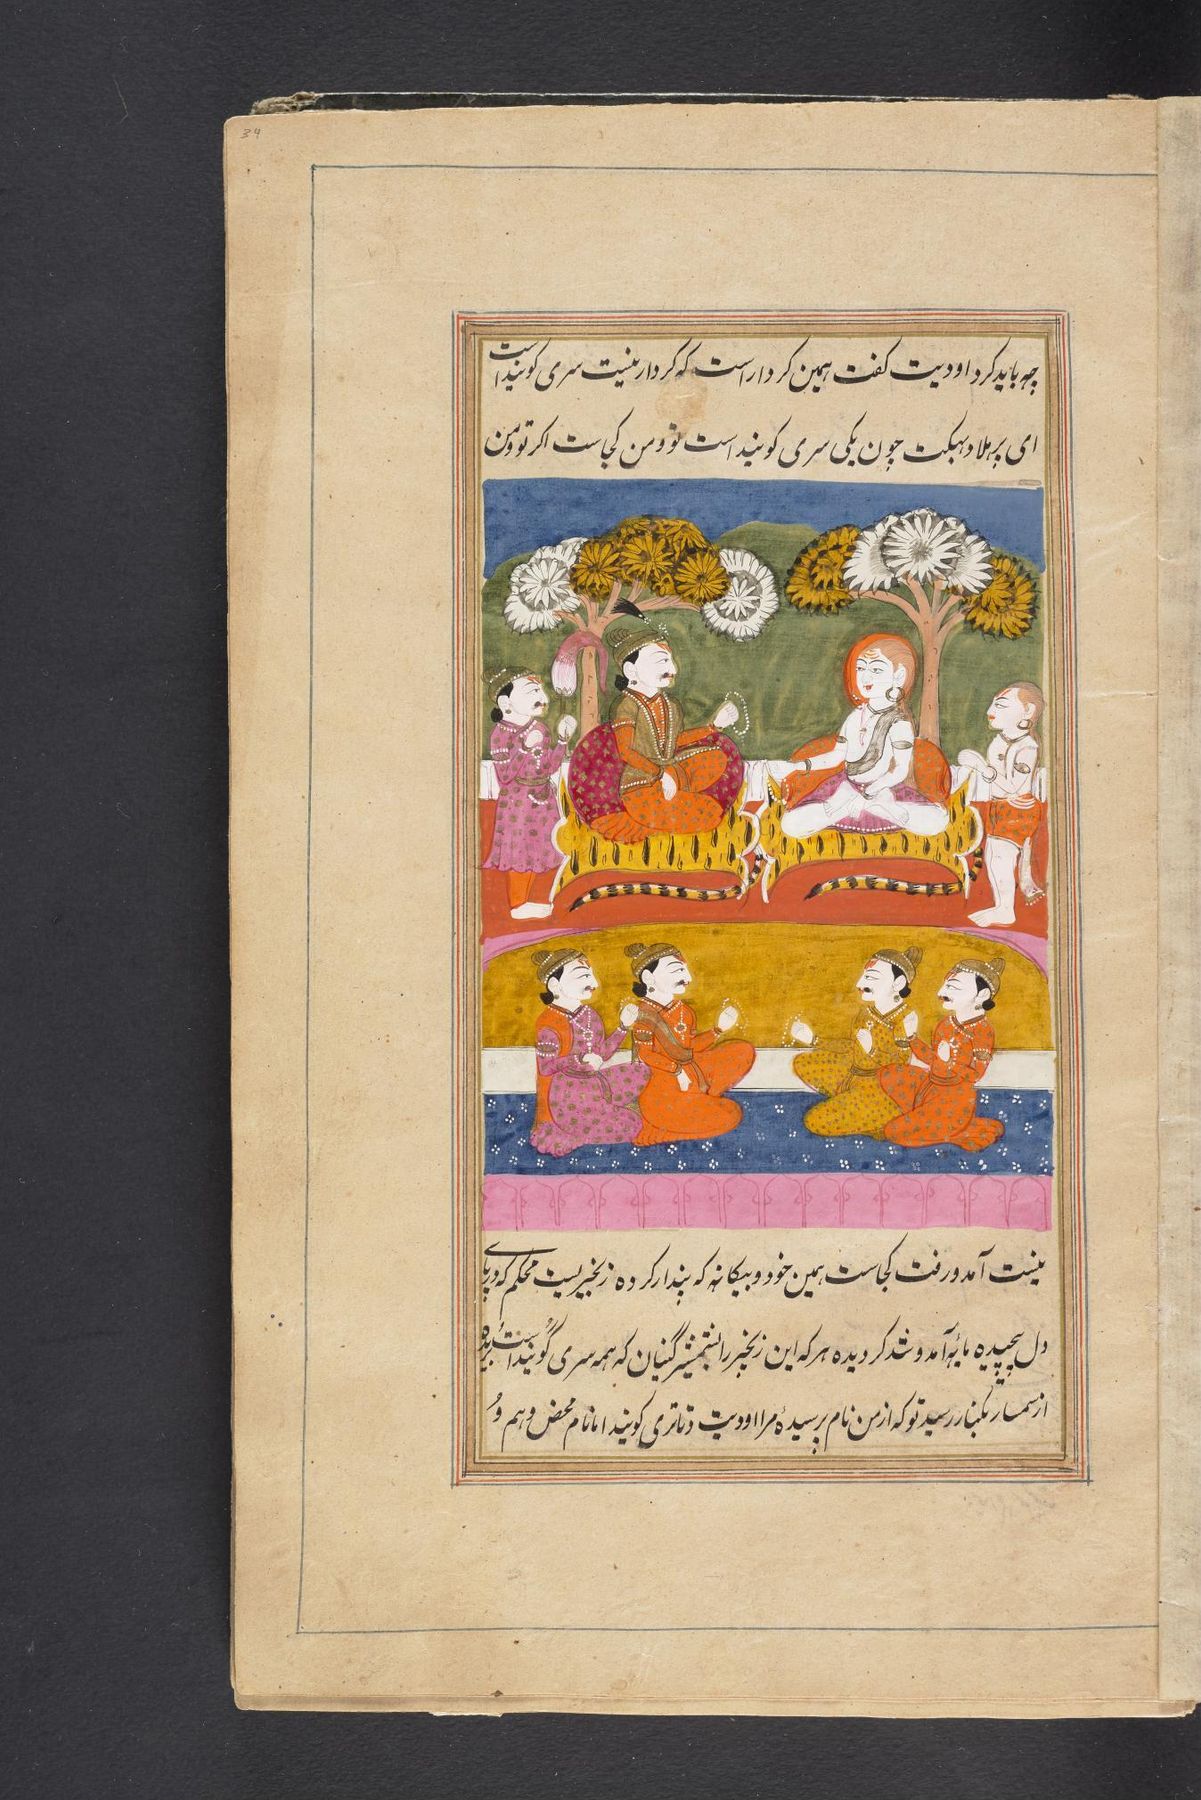 34
چه باید کرد اودیت کفت همین کردار است که کردار نیست سری کوبند است
ای پرهلاد بهکت چون یکی سری کوبند است تو و من کجاست اکر تو و من
نیست آمد و رفت کجاست همین خود و بیکانه که پندار کرده زنجیریست محکم که در پای
دل پیچیده مایهٔ آمد و شد کردیده هر که این زنجیر را بشمشیر گیان که همه سری گوبند است بریده
از سمسار بکنار رسید تو که از من نام پرسیدهٔ مرا اودیت دتاتری کویند اما نام محض و هم و